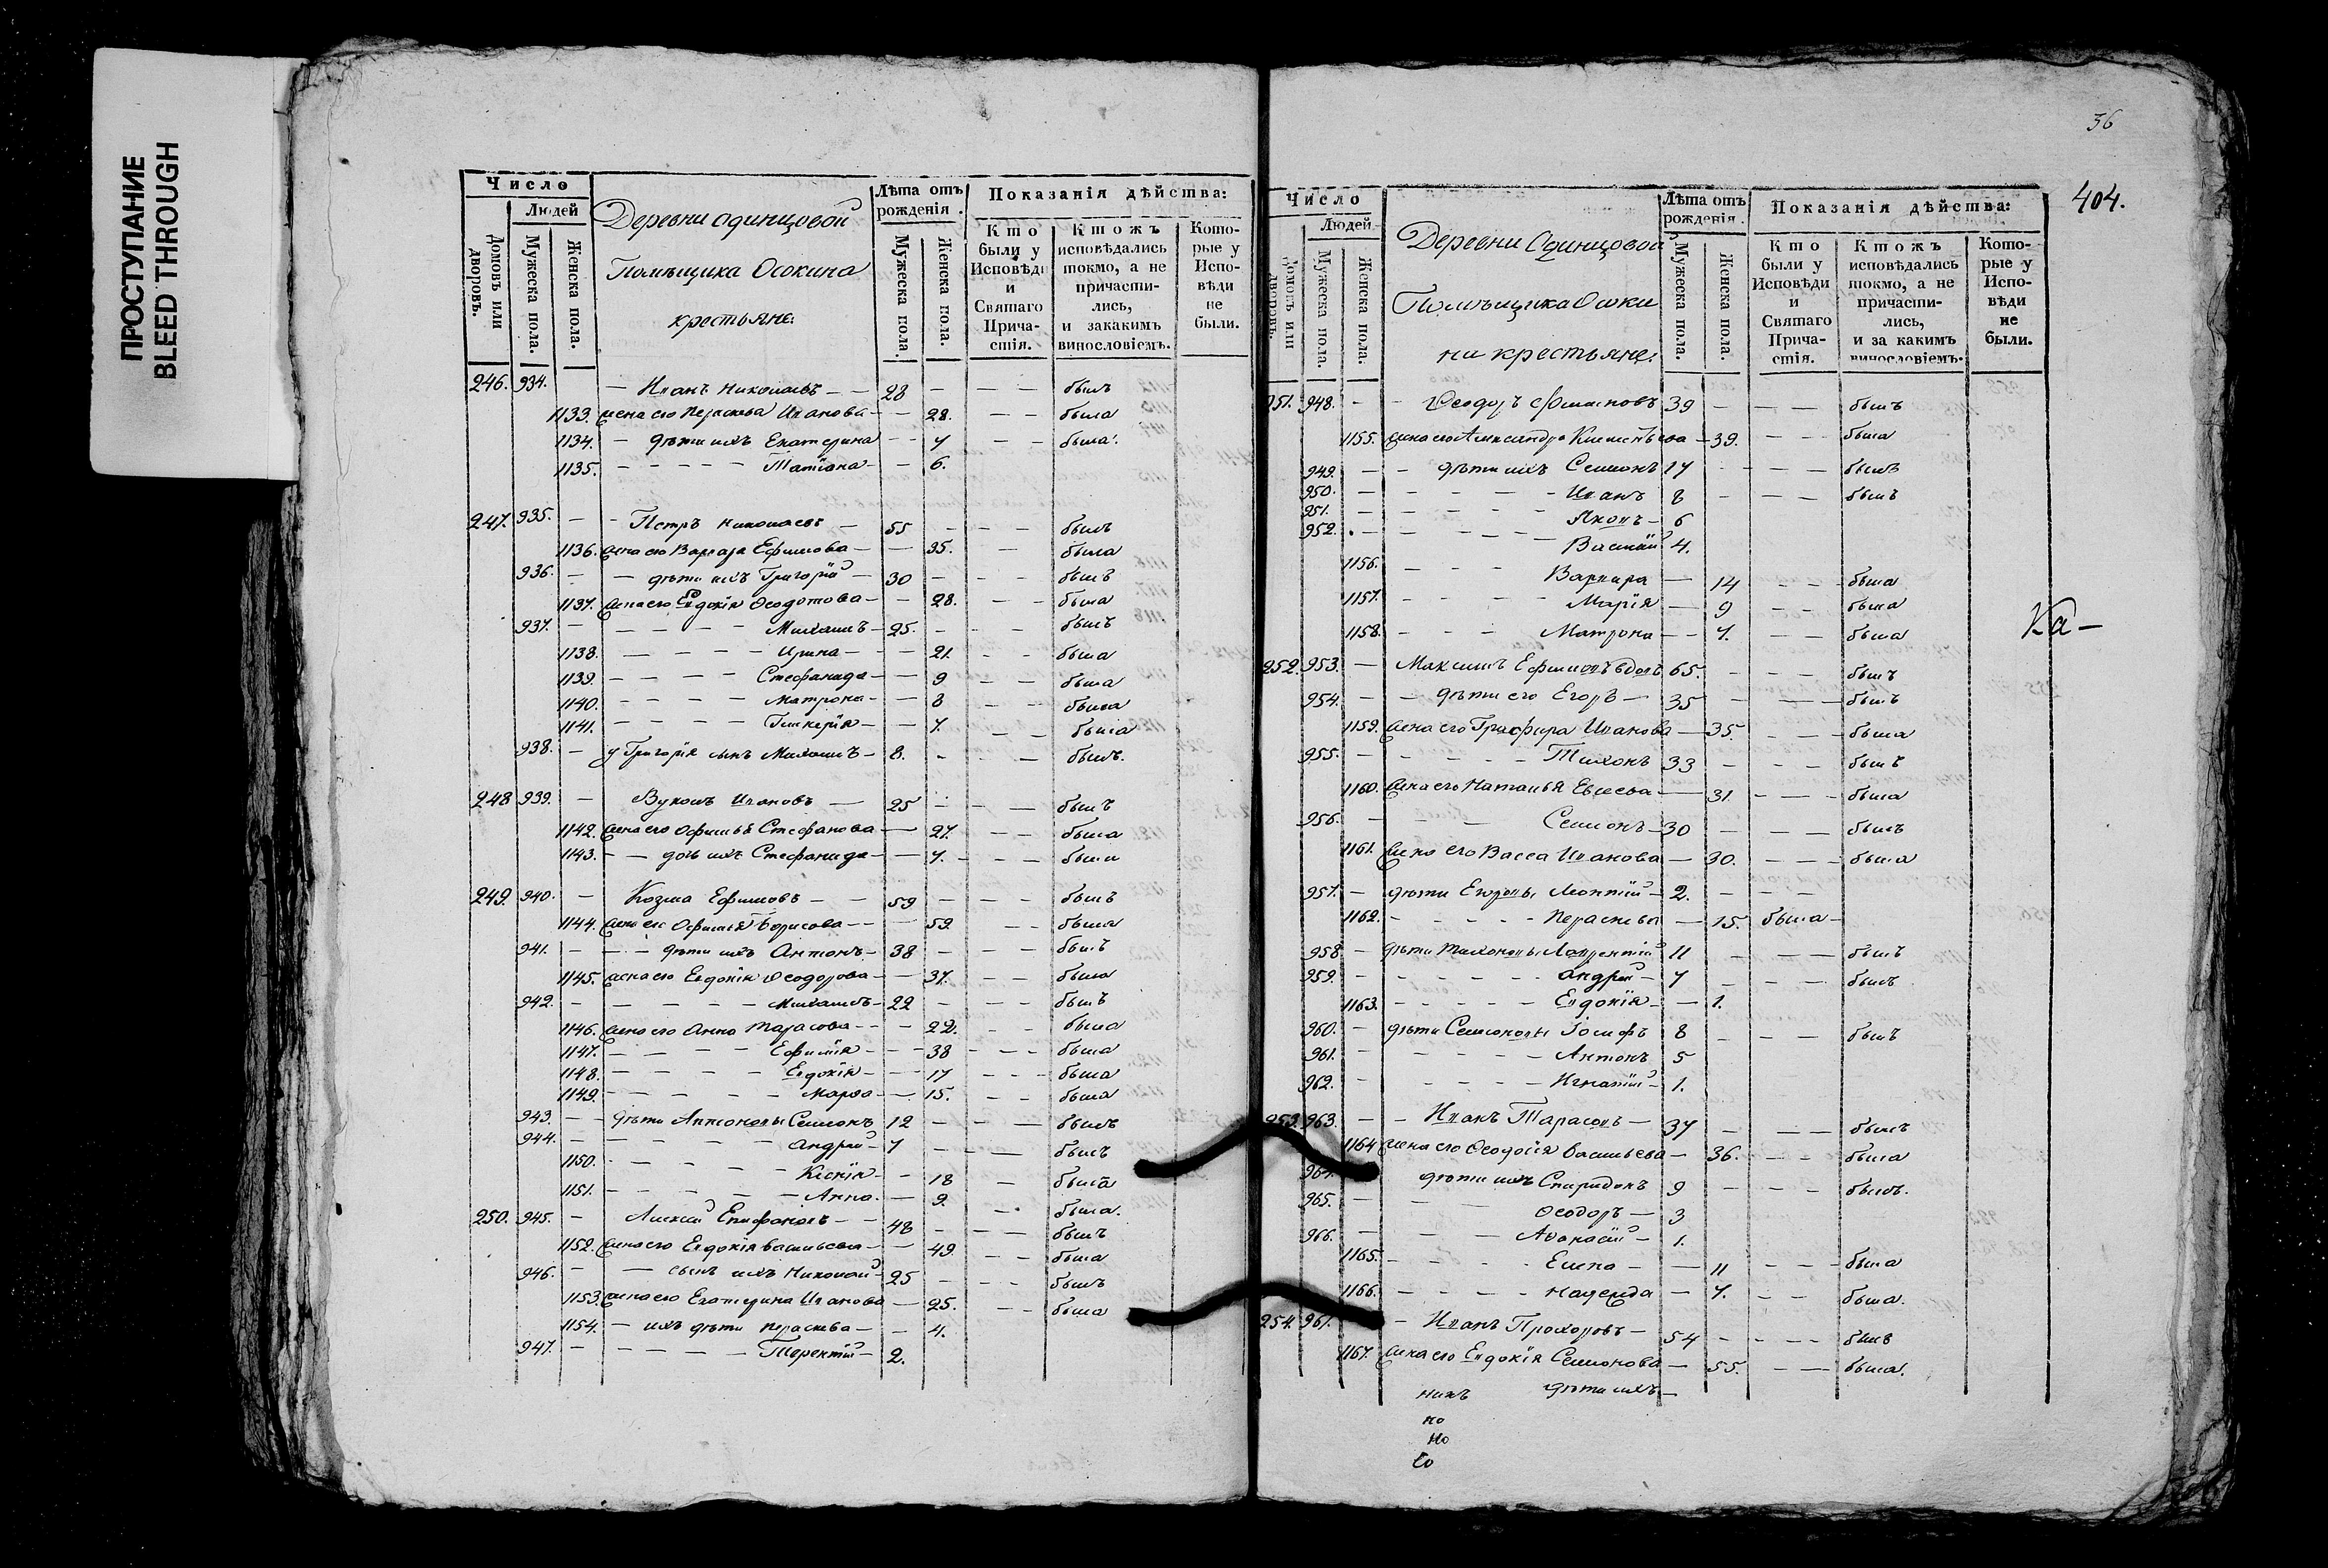 ПРОСТУПАНИЕ
BLEED THROUGH
Число
Людей
Домовъ или дворовъ.
Мужеска пола.
Женска пола.
Деревни Одинцовой
Помѣщика Осокина
крестьяне.
Лѣта отъ рожденія.
Мужеска пола.
Женска пола.
Показанія дѣйства:
Кто были у Исповѣди и Святаго Причастія.
Ктожъ исповѣдались токмо, а не причастились, и закакимъ винословіемъ.
Которые у Исповѣди не были.
246. 934. Иванъ Николаевъ 28 былъ
1133. жена его Параскева Иванова 28. была
1134. дѣти ихъ Екатерина 7 была.
1135. Татіана 6.
247. 935. Петръ Николаевъ 55 былъ
1136. жена его Варвара Ефимова 35. была
936. дѣти ихъ Григорій 30 былъ
1137. жена его Евдокія Ѳеодотова 28. была
937. Михаилъ 25. былъ
1138. Ирина 21. была
1139. Стефанида 9 была
1140. Матрона 8 была
1141. Гликерія 7. была
938. у Григорія сынъ Михаилъ 8. былъ.
248 939. Вуколъ Ивановъ 25 былъ
1142. жена его Офимья Стефанова 27. была
1143. дочь ихъ Стефанида 7. была
249 940. Козма Ефимовъ 59 былъ
1144. жена его Офимья Борисова 59. была
941. дѣти ихъ Антонъ 38 былъ
1145. жена его Евдокія Ѳеодорова 37. была
942. Михаилъ 22 былъ
1146. жена его Анна Тарасова 22. была
1147. Ефимія 38 была
1148. Евдокія 17 была
1149. Марѳа 15. была
943. дѣти Антоновы Семионъ 12 былъ
944. Андрей 7 былъ
1150. Ксенія 18 была
1151. Анна 9. была.
250. 945. Алексій Епифановъ 48 былъ
1152. жена его Евдокія Васильева 49. была
946. сынъ ихъ Николай 25 былъ
1153. жена его Екатерина Иванова 25. была
1154. ихъ дѣти Параскева 4.
947. Терентій 2.
36
404.
Число
Людей
Домовъ или дворовъ.
Мужеска пола.
Женска пола.
Деревни Одинцовой
Помѣщика Осоки
на крестьяне.
Лѣта отъ рожденія.
Мужеска пола.
Женска пола.
Показанія дѣйства:
Кто были у Исповѣди и Святаго Причастія.
Ктожъ исповѣдались токмо, а не причастились, и за какимъ винословіемъ.
Которые у Исповѣди не были.
251. 948. Ѳеодоръ 39 былъ
1155. жена его Александра 39. была
949. дѣти ихъ Семионъ 17 былъ
950. Иванъ 8 былъ
951. Яковъ 6
952. Василій 4.
1156. Варвара 14 была
1157. Марія 9 была
1158. Матрона 7. была
Ка-
252. 953. Максимъ Ефимовъ вдовъ 65. былъ
954. дѣти его Егоръ 35 былъ
1159. жена его Иванова 35. была
955. Тихонъ 33 былъ
1160. жена его Наталья Евсеева 31 была
956. Семионъ 30 былъ
1161. жена его Васса Иванова 30. была
957. дѣти Егоровы Леонтій 2.
1162. Параскева 15. была
958 дѣти Тихоновы Лаврентій 11 былъ
959. Андрей 7 былъ
1163. Евдокія 1.
960. дѣти Семионовы Іосифъ 8 былъ
961. Антонъ 5
962. Игнатій 1.
253. 963. Иванъ Тарасовъ 37 былъ
1164 жена его Ѳеодосія Васильева 36. была
964. дѣти ихъ Спиридонъ 9 былъ.
965. Ѳеодоръ 3
966. Аѳанасій 1.
1165. Елена 11 была
1166. Надежда 7. была.
254. 967. Иванъ Прохоровъ 54 былъ
1167. жена его Евдокія Семионова 55. была.
дѣти ихъ